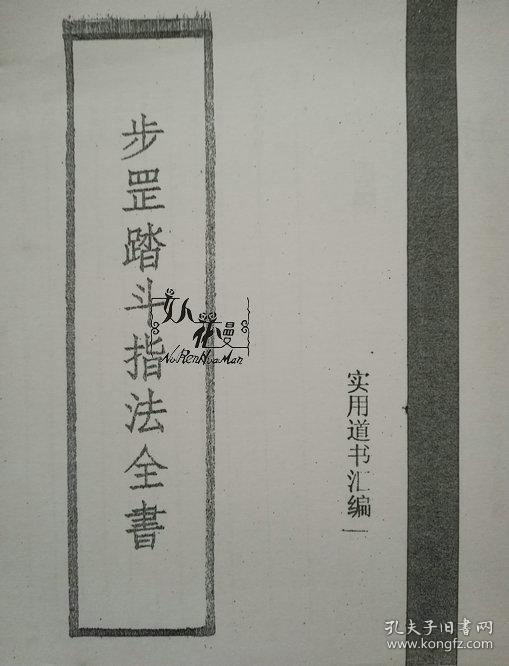 步罡踏斗指法全書
实用道书汇编一
女人花曼
NuRenHuaMan
孔夫子旧书网
www.kongfz.com